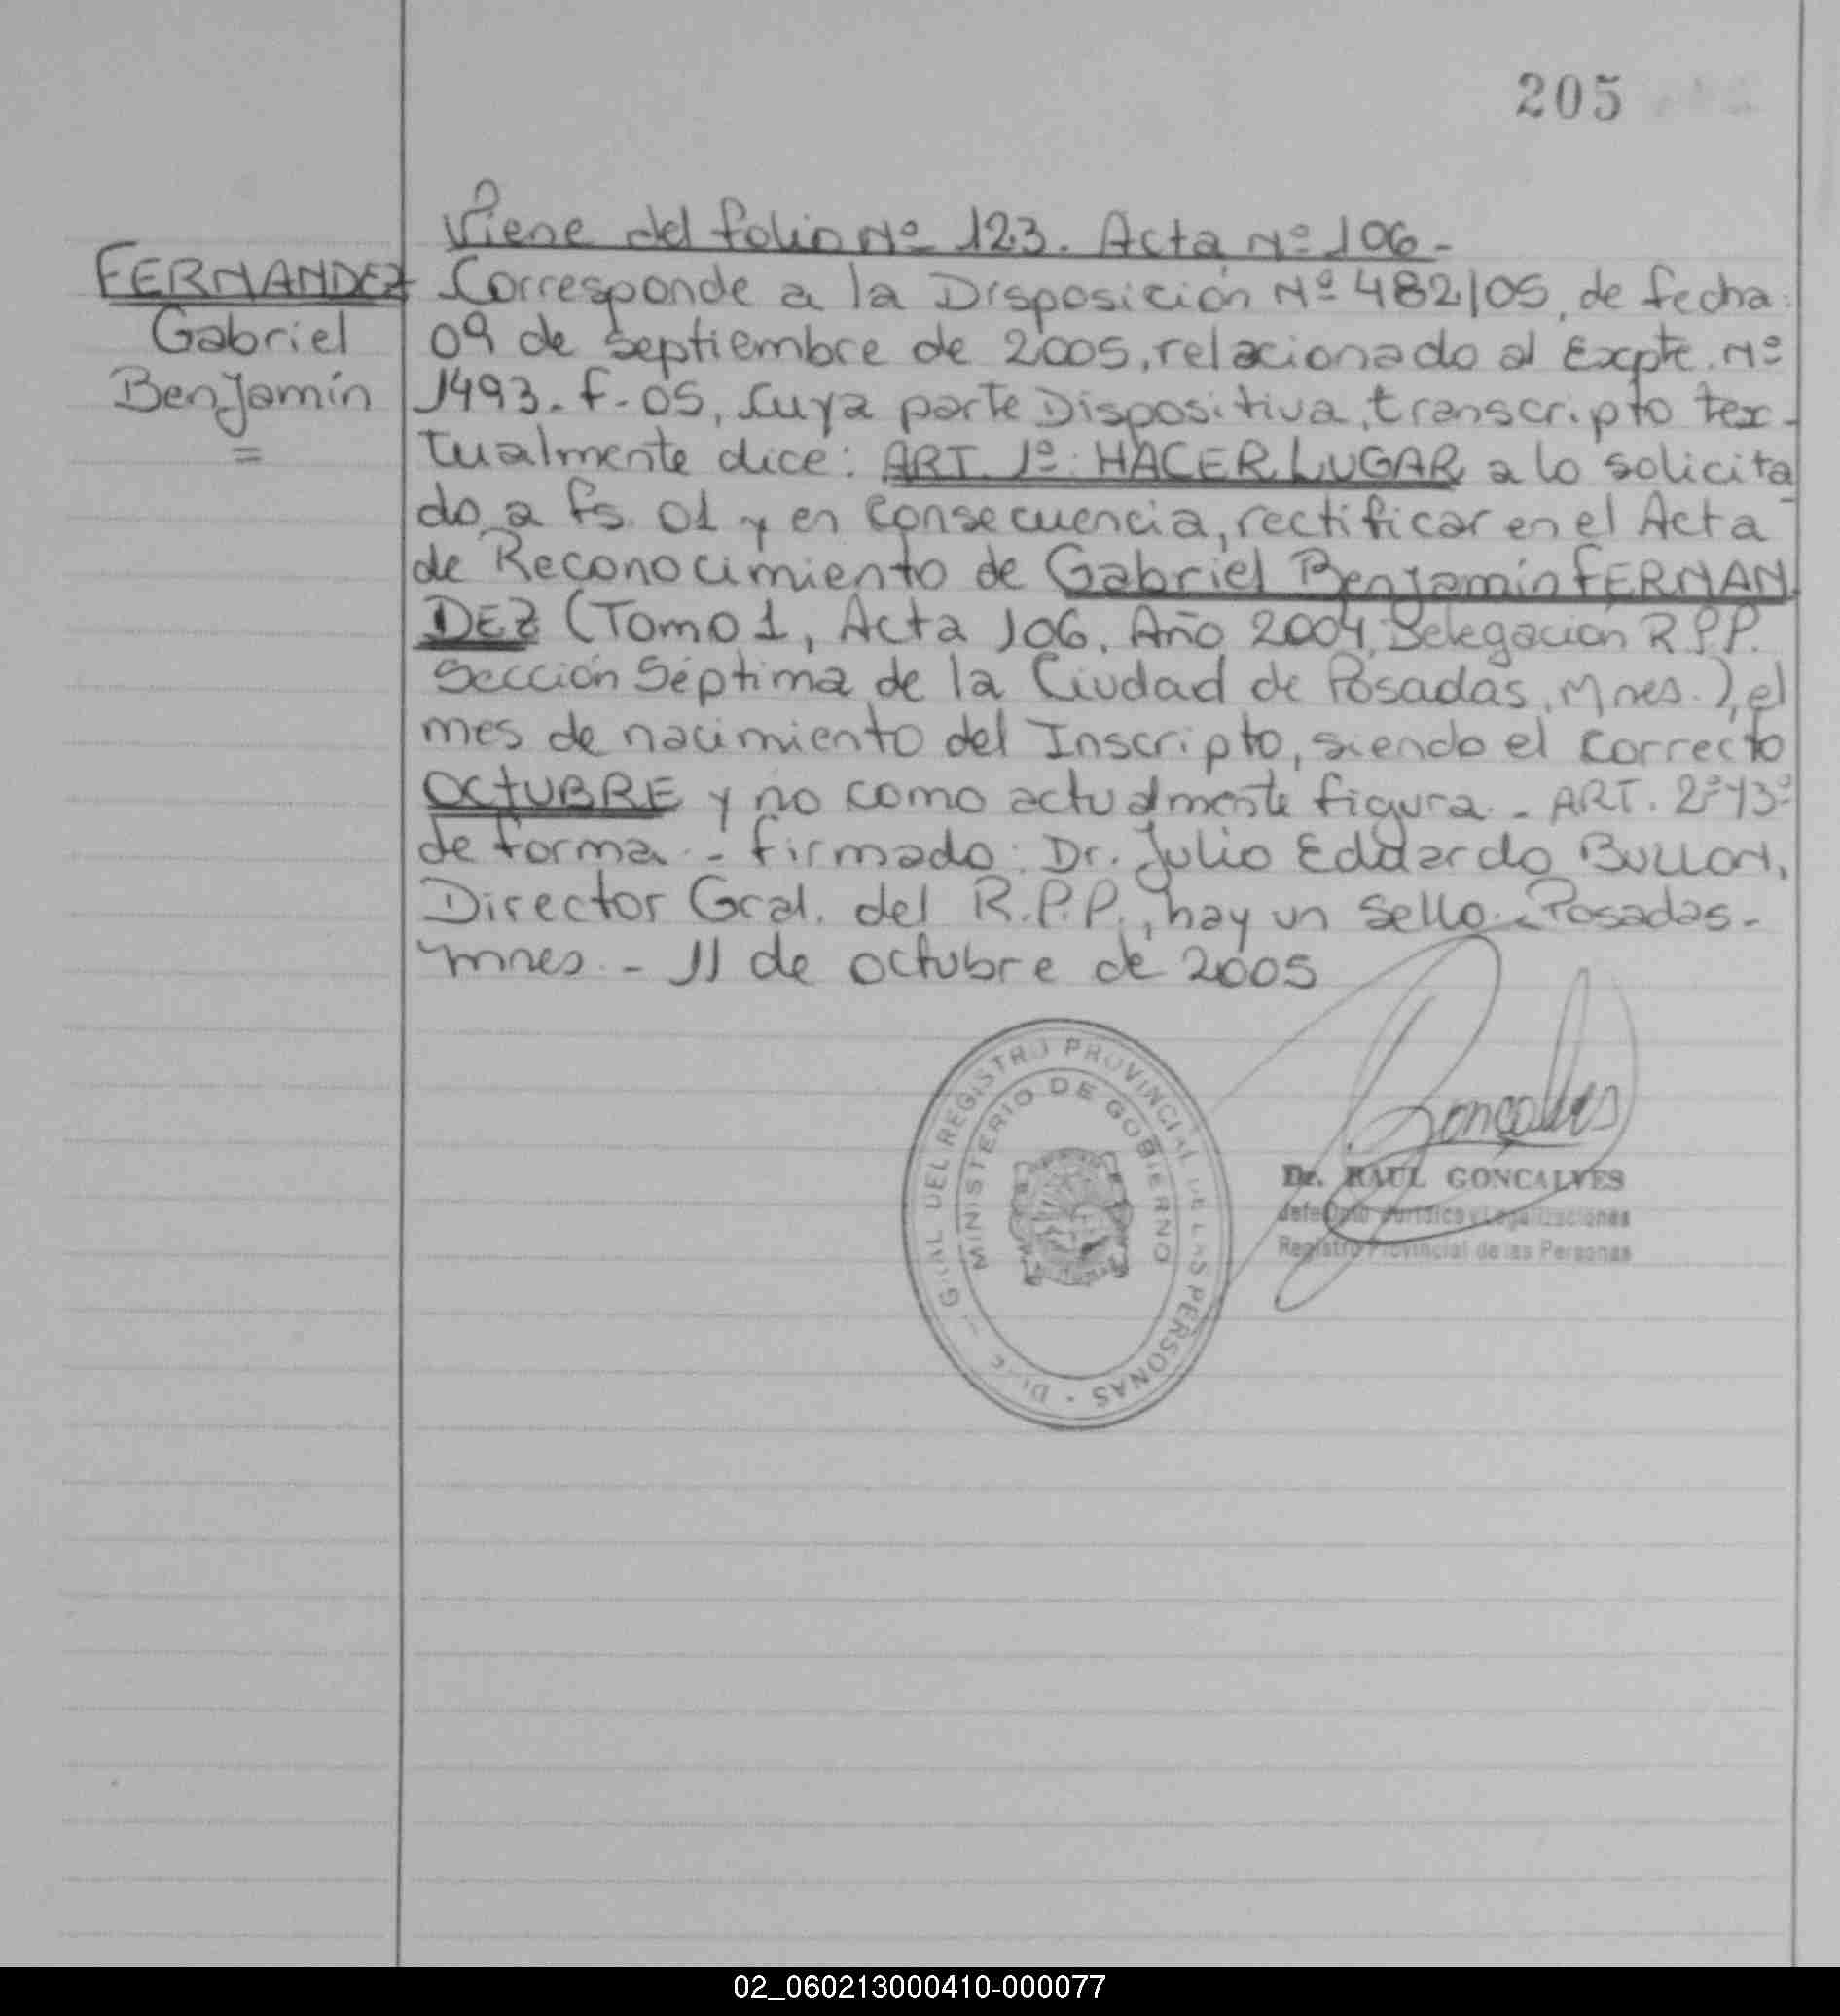 205
Viene del folio Nº 123. Acta Nº 106-
FERNANDEZ
Gabriel
Benjamín
=
Corresponde a la Disposición Nº 482/05, de fecha:
09 de Septiembre de 2005, relacionado al Expte. Nº
1493-F-05, Cuya parte Dispositiva, transcripto tex-
tualmente dice: ART. 1º: HACER LUGAR a lo solicita
do a fs. 01 y en Consecuencia, rectificar en el Acta
de Reconocimiento de Gabriel Benjamín FERNAN
DEZ (Tomo 1, Acta 106, Año 2004, Delegación R.P.P.
Sección Séptima de la Ciudad de Posadas, Mnes.), el
mes de nacimiento del Inscripto, siendo el Correcto
OCTUBRE y no como actualmente figura.- ART. 2º y 3º
de forma.- Firmado: Dr. Julio Eduardo BULLON,
Director Gral. del R.P.P., hay un Sello.- Posadas-
Mnes.- 11 de octubre de 2005
DIREC. GRAL DEL REGISTRO PROVINCIAL DE LAS PERSONAS -
MINISTERIO DE GOBIERNO
Goncalves
Dr. RAUL GONCALVES
Jefe Dpto Jurídico y Legalizaciones
Registro Provincial de las Personas
02_060213000410-000077